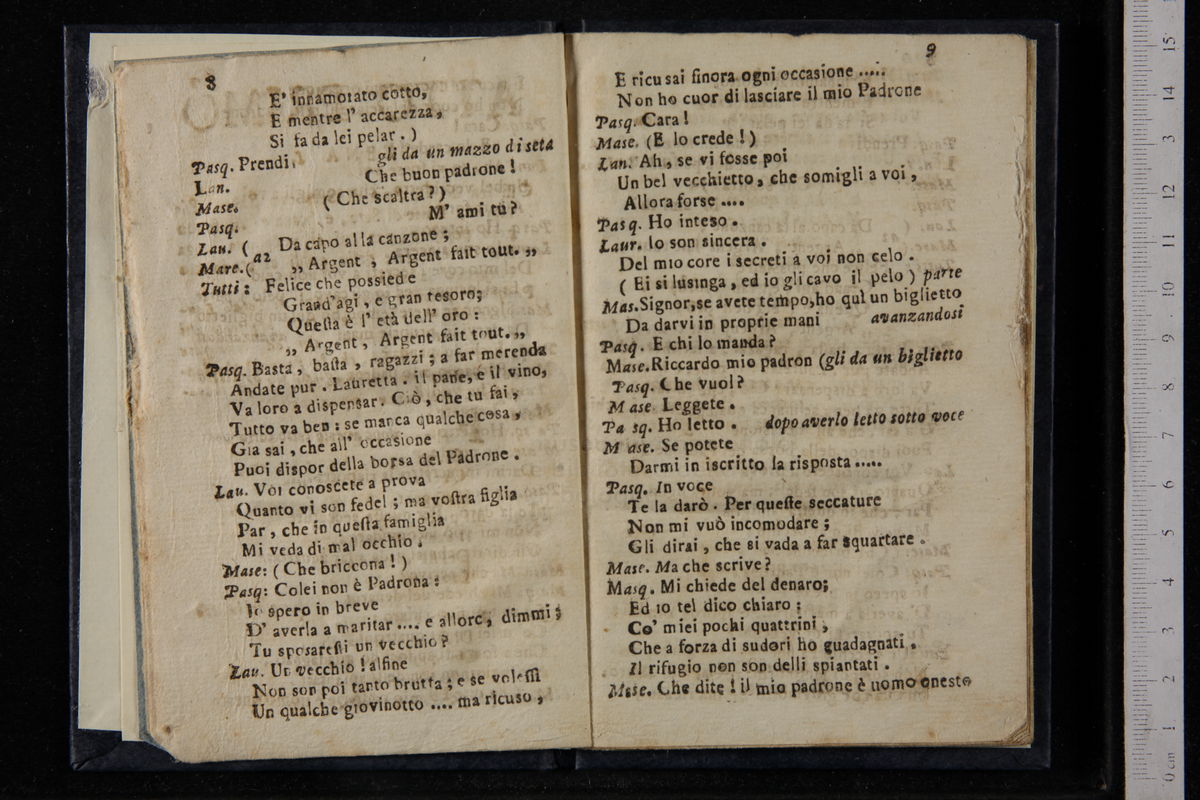 8
E' innamorato cotto,
E mentre l' accarezza,
Si fa da lei pelar . )
Pasq. Prendi. gli da un mazzo di seta
Lan. Che buon padrone !
Mase. ( Che scaltra ? )
Pasq. M' ami tu ?
Lau. ( a2 Da capo alla canzone ;
Mare. ( „ Argent , Argent fait tout. „
Tutti : Felice che possiede
Grand' agi , e gran tesoro;
Questa è l' età dell' oro :
„ Argent , Argent fait tout. „
Pasq. Basta , basta , ragazzi ; a far merenda
Andate pur . Lauretta . il pane, e il vino,
Va loro a dispensar. Ciò , che tu fai ,
Tutto va ben : se manca qualche cosa ,
Gia sai , che all' occasione
Puoi dispor della borsa del Padrone .
Lau. Voi conoscete a prova
Quanto vi son fedel ; ma vostra figlia
Par , che in questa famiglia
Mi veda di mal occhio .
Mase: ( Che briccona ! )
Pasq: Colei non è Padrona :
Io spero in breve
D' averla a maritar .... e allore , dimmi ;
Tu sposaresti un vecchio ?
Lau. Un vecchio ! alfine
Non son poi tanto brutta ; e se volessi
Un qualche giovinotto .... ma ricuso ,
9
E ricusai finora ogni occasione .....
Non ho cuor di lasciare il mio Padrone
Pasq. Cara !
Mase. (E lo crede ! )
Lan. Ah , se vi fosse poi
Un bel vecchietto , che somigli a voi ,
Allora forse ....
Pasq. Ho inteso .
Laur. Io son sincera .
Del mio core i secreti à voi non celo .
( Ei si lusinga , ed io gli cavo il pelo ) parte
Mas. Signor, se avete tempo, ho quì un biglietto
Da darvi in proprie mani avanzandosi
Pasq. E chi lo manda ?
Mase. Riccardo mio padron (gli da un biglietto
Pasq. Che vuol ?
Mase. Leggete .
Pasq. Ho letto . dopo averlo letto sotto voce
Mase. Se potete
Darmi in iscritto la risposta .....
Pasq. In voce
Te la darò . Per queste seccature
Non mi vuò incomodare ;
Gli dirai , che si vada a far squartare .
Mase. Ma che scrive ?
Masq. Mi chiede del denaro;
Ed io tel dico chiaro :
Co' miei pochi quattrini ,
Che a forza di sudori ho guadagnati ,
Il rifugio non son delli spiantati .
Mese. Che dite ! il mio padrone è uomo onesto